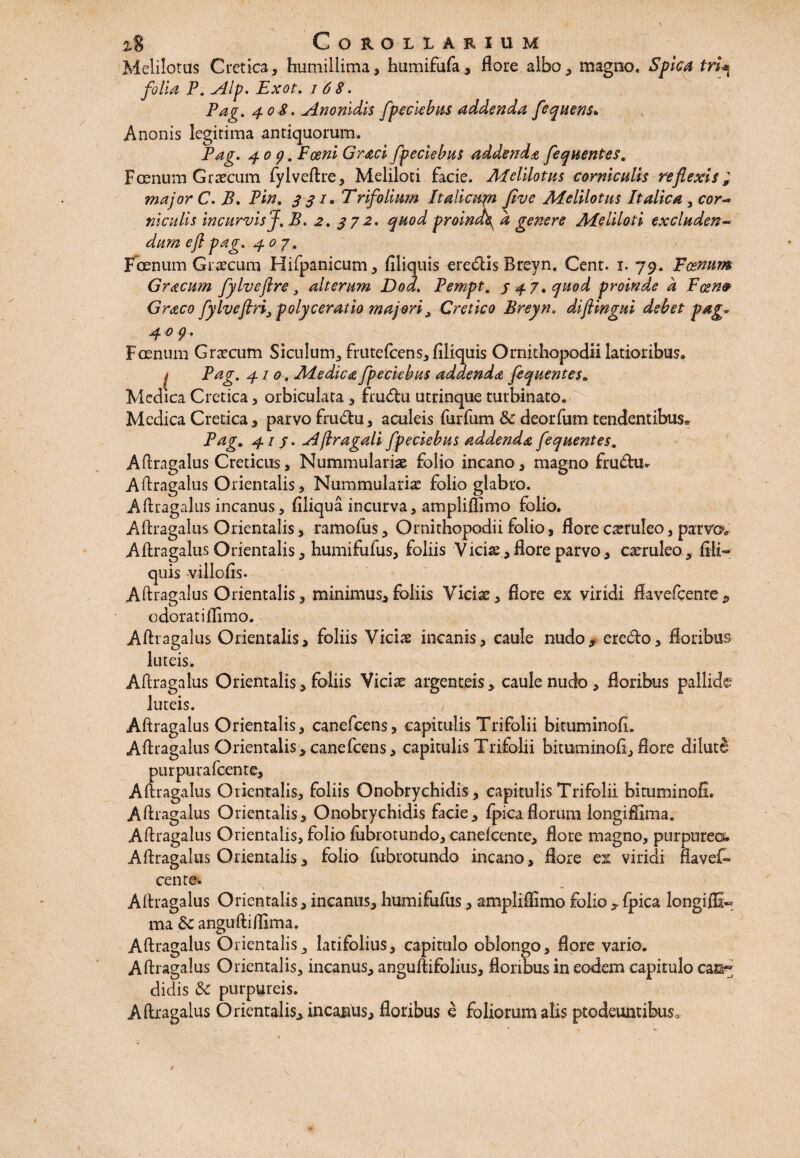 28 COROLLARIUM
Melilotus Cretica, humillima, humifuſa, flore albo, magno. Spica tri-
folia P. Alp. Exot. 168.
Pag. 408. Anonidis ſpeciebus addenda ſequens.
Anonis legitima antiquorum.
Pag. 409. Fœni Græci ſpeciebus addendæ ſequentes.
Fœnum Græcum ſylveſtre, Meliloti facie. Melilotus corniculis reflexis;
major C. B. Pin. 331. Trifolium Italicum ſive Melilotus Italica, cor-
niculis incurvis J. B. 2. 372. quod proinde à genere Meliloti excluden-
dum eſt pag. 407.
Fœnum Græcum Hiſpanicum, ſiliquis erectis Breyn. Cent. 1. 79. Fœnum
Græcum ſylveſtre, alterum Dod. Pempt. 547. quod proinde à Fœno
Græco ſylveſtri, polyceratio majori, Cretico Breyn. diſtingui debet pag.
409.
Fœnum Græcum Siculum, fruteſcens, ſiliquis Ornithopodii latioribus.
Pag. 410. Medicæ ſpeciebus addendæ ſequentes.
Medica Cretica, orbiculata, fructu utrinque turbinato.
Medica Cretica, parvo fructu, aculeis ſurſum & deorſum tendentibus.
Pag. 415. Aſtragali ſpeciebus addendæ ſequentes.
Aſtragalus Creticus, Nummulariæ folio incano, magno fructu.
Aſtragalus Orientalis, Nummulariæ folio glabro.
Aſtragalus incanus, ſiliquâ incurva, ampliſſimo folio.
Aſtragalus Orientalis, ramoſus, Ornithopodii folio, flore cæruleo, parvo.
Aſtragalus Orientalis, humifuſus, foliis Viciæ, flore parvo, cæruleo, ſili-
quis villoſis.
Aſtragalus Orientalis, minimus, foliis Viciæ, flore ex viridi flaveſcente,
odoratiſſimo.
Aſtragalus Orientalis, foliis Viciæ incanis, caule nudo, erecto, floribus
luteis.
Aſtragalus Orientalis, foliis Viciæ argenteis, caule nudo, floribus pallide
luteis.
Aſtragalus Orientalis, caneſcens, capitulis Trifolii bituminoſi.
Aſtragalus Orientalis, caneſcens, capitulis Trifolii bituminoſi, flore dilutè
purpuraſcente,
Aſtragalus Orientalis, foliis Onobrychidis, capitulis Trifolii bituminoſi.
Aſtragalus Orientalis, Onobrychidis facie, ſpica florum longiſſima.
Aſtragalus Orientalis, folio ſubrotundo, caneſcente, flore magno, purpureo.
Aſtragalus Orientalis, folio ſubrotundo incano, flore ex viridi flaveſ-
cente.
Aſtragalus Orientalis, incanus, humifuſus, ampliſſimo folio, ſpica longiſſi-
ma & anguſtiſſima.
Aſtragalus Orientalis, latifolius, capitulo oblongo, flore vario.
Aſtragalus Orientalis, incanus, anguſtifolius, floribus in eodem capitulo can-
didis & purpureis.
Aſtragalus Orientalis, incanus, floribus è foliorum alis prodeuntibus.